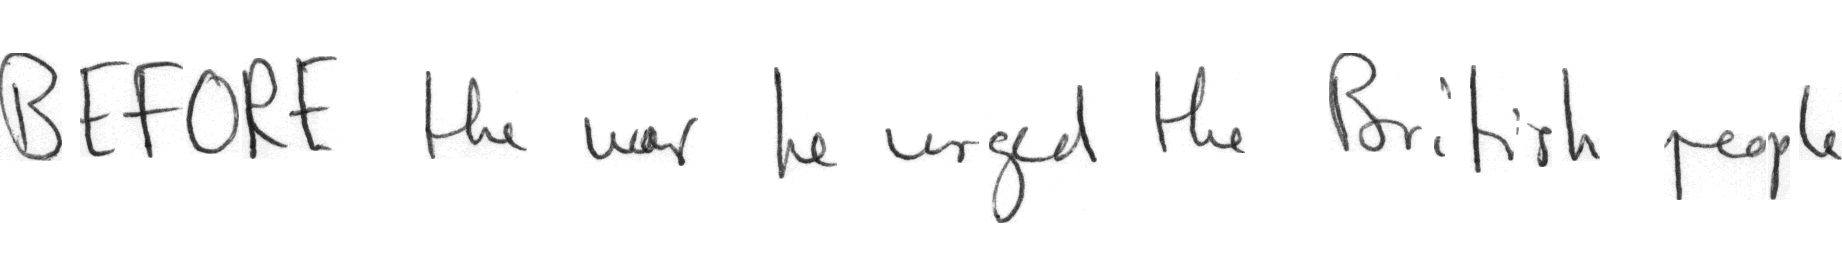 BEFORE the war he urged the British people